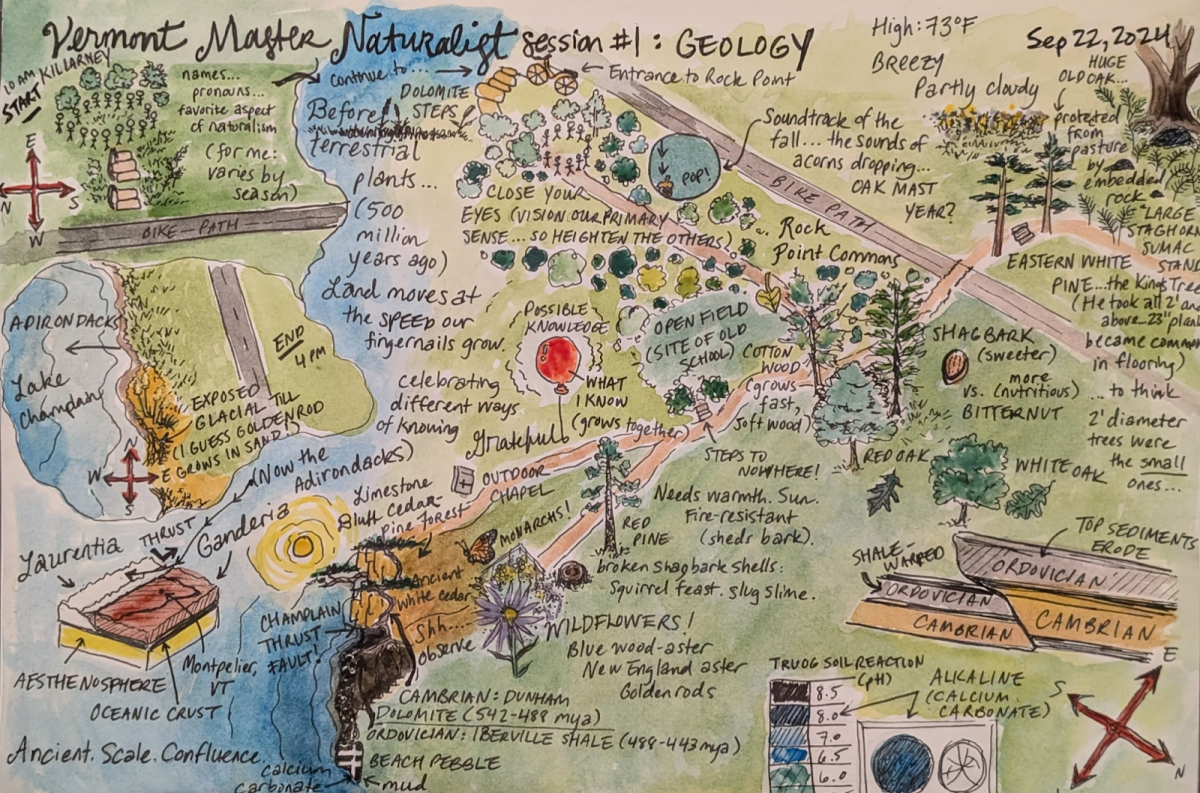 Vermont Master Naturalist session #1: GEOLOGY
High: 73°F
BREEZY
Partly cloudy
Sep 22, 2024
10 AM KILLARNEY
START
names...
pronouns...
favorite aspect
of naturalism
(for me:
varies by
season)
E
N
S
W
BIKE PATH
continue to...
DOLOMITE
STEPS
Entrance to Rock Point
Before
terrestrial
plants...
(500
million
years ago)
Land moves at
the SPEED our
fingernails grow.
CLOSE YOUR
EYES (VISION OUR PRIMARY
SENSE... SO HEIGHTEN THE OTHERS)
POP!
Soundtrack of the
fall... the sounds of
acorns dropping...
OAK MAST
YEAR?
BIKE PATH
HUGE
OLD OAK...
protected
from
pasture
by
embedded
rock
"LARGE
STAGHORN
SUMAC
STAND
Rock
Point Commons
EASTERN WHITE
PINE... the King's Tree
(He took all 2'
above... 23"
became common
in flooring)
... to think
2' diameter
trees were
the small
ones...
ADIRONDACKS
Lake
Champlain
END
4 PM
EXPOSED
GLACIAL TILL
(I GUESS GOLDENROD
GROWS IN SAND)
N
W
E
S
POSSIBLE
KNOWLEDGE
WHAT
I KNOW
(grows together)
celebrating
different ways
of knowing
Grateful
OPEN FIELD
(SITE OF OLD
SCHOOL)
COTTON
WOOD
(grows
fast,
soft wood)
SHAGBARK
(sweeter)
vs. more
(nutritious)
BITTERNUT
STEPS TO
NOWHERE!
RED OAK
WHITE OAK
(Now the
Adirondacks)
THRUST
Laurentia
Ganderia
AESTHENOSPHERE
OCEANIC CRUST
Montpelier,
VT
Limestone
Bluff Cedar-
Pine forest
OUTDOOR
CHAPEL
MONARCHS!
Ancient
white cedar
Shh...
observe
CHAMPLAIN
THRUST
FAULT!
RED
PINE
Needs warmth. Sun.
Fire-resistant
(sheds bark).
broken shagbark shells:
Squirrel feast. slug slime.
WILDFLOWERS!
Blue wood-aster
New England aster
Goldenrods
SHALE-
WARPED
TOP SEDIMENTS
ERODE
ORDOVICIAN
ORDOVICIAN
CAMBRIAN
CAMBRIAN
CAMBRIAN: DUNHAM
DOLOMITE (542-488 mya)
ORDOVICIAN: IBERVILLE SHALE (488-443 mya)
BEACH PEBBLE
calcium
carbonate
mud
Ancient. Scale. Confluence.
TRUOG SOIL REACTION
(pH)
8.5
8.0
7.0
6.5
6.0
ALKALINE
(CALCIUM
CARBONATE)
E
S
N